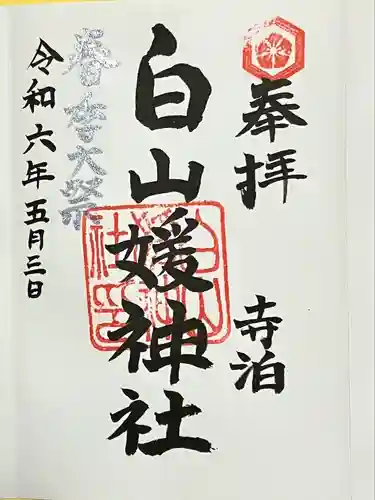 奉拝
寺泊
白山媛神社
春季大祭
令和六年五月三日